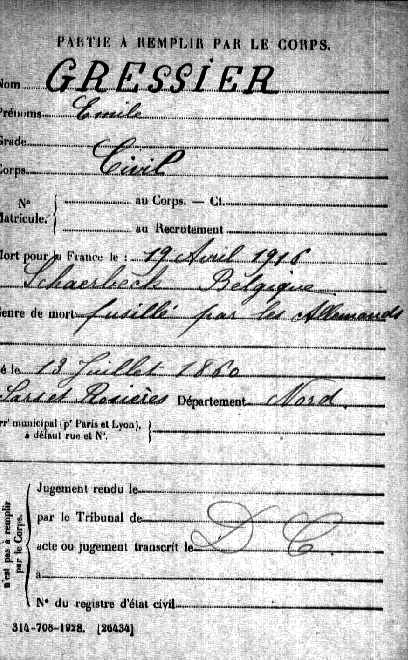 PARTIE À REMPLIR PAR LE CORPS.
Nom GRESSIER
Prénoms Emile
Grade
Corps Civil
N° Matricule. { au Corps. — Cl.
au Recrutement
Mort pour la France le : 19 Avril 1916
à Schaerbeck Belgique
Genre de mort fusillé par les Allemands
Né le 13 Juillet 1860
à Sars et Rosières Département Nord.
Arrt municipal (pr Paris et Lyon), à défaut rue et N°.
n'est pas à remplir par le Corps.
Jugement rendu le
par le Tribunal de
acte ou jugement transcrit le D C
à
N° du registre d'état civil
314-708-1928. [26434]